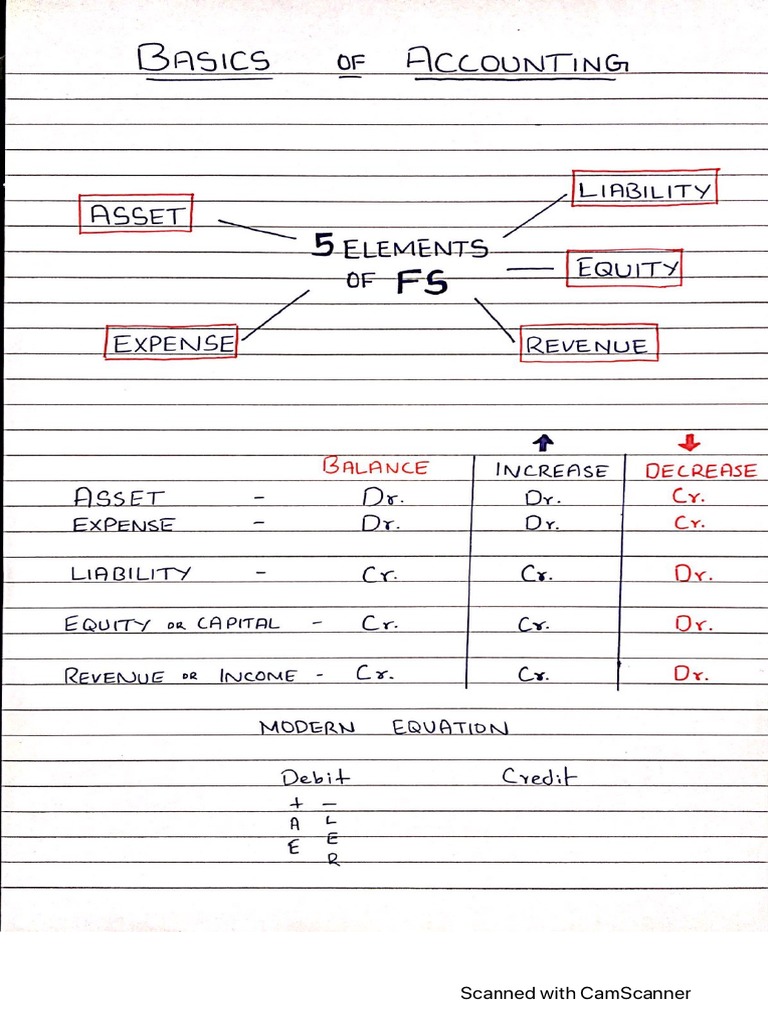 BASICS OF ACCOUNTING
ASSET
LIABILITY
5 ELEMENTS
OF FS
EQUITY
EXPENSE
REVENUE
↑ ↓
BALANCE INCREASE DECREASE
ASSET - Dr. Dr. Cr.
EXPENSE - Dr. Dr. Cr.
LIABILITY - Cr. Cr. Dr.
EQUITY OR CAPITAL - Cr. Cr. Dr.
REVENUE OR INCOME - Cr. Cr. Dr.
MODERN EQUATION
Debit Credit
+ −
A L
E E
R
Scanned with CamScanner